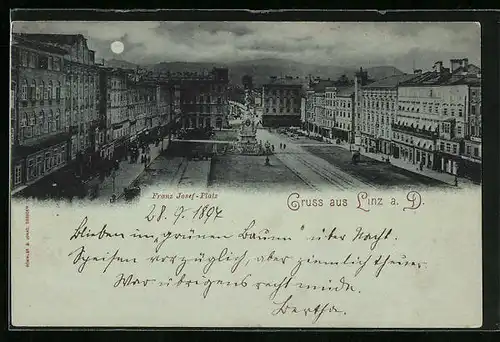 Franz Josef-Platz
Gruss aus Linz a. D.
28. 9. 1897
Bleiben im "grünen Baum" über Nacht.
Speisen vorzüglich, aber ziemlich theuer.
War übrigens recht müde.
Bertha.